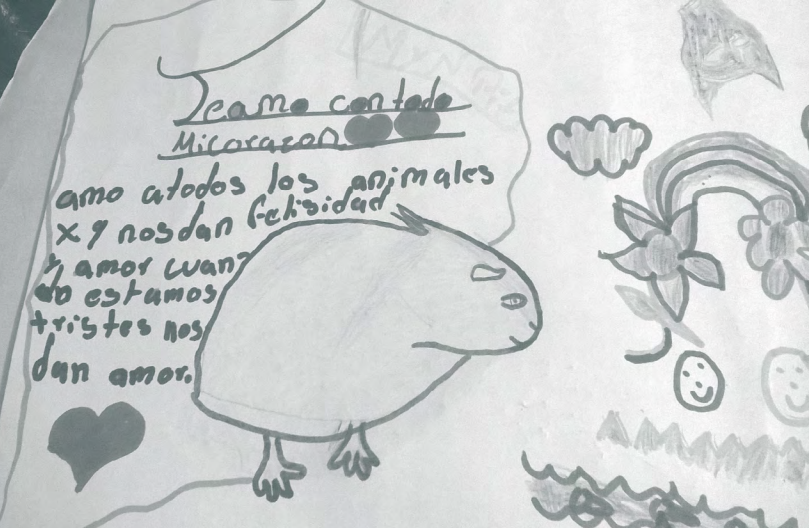 Teamo con todo
Micorazon
amo atodos los animales
x y nos dan felisidad
y amor cuan
do estamos
tristes nos
dan amor.